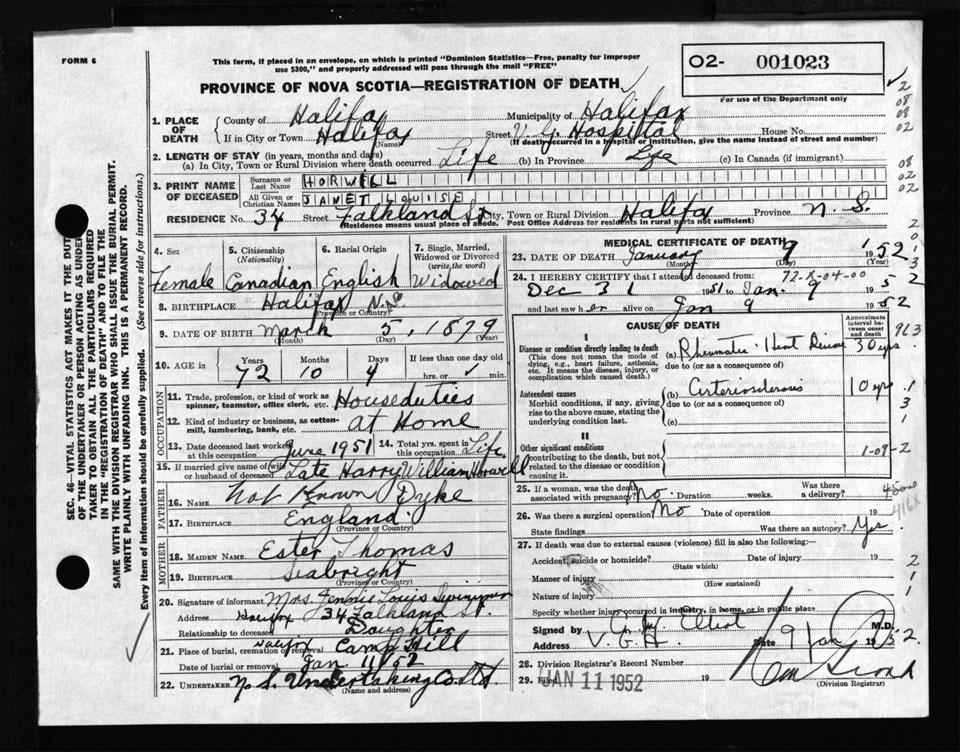 FORM 6
This form, if placed in an envelope, on which is printed "Dominion Statistics—Free, penalty for improper
use $300," and properly addressed will pass through the mail "FREE"
O2- 001023
For use of the Department only
PROVINCE OF NOVA SCOTIA—REGISTRATION OF DEATH
1. PLACE OF DEATH
County of Halifax Municipality of Halifax
If in City or Town Halifax Street V. G. Hospital House No.
(Name) (If death occurred in a hospital or institution, give the name instead of street and number)
2. LENGTH OF STAY (in years, months and days)
(a) In City, Town or Rural Division where death occurred Life (b) In Province Life (c) In Canada (if immigrant)
3. PRINT NAME OF DECEASED
Surname or Last Name HORWILL
All Given or Christian Names JANET LOUISE
RESIDENCE No. 34 Street Falkland St City, Town or Rural Division Halifax Province N. S.
(Residence means usual place of abode. Post Office Address for residents in rural parts not sufficient)
4. Sex 5. Citizenship (Nationality) 6. Racial Origin 7. Single, Married, Widowed or Divorced (write the word)
Female Canadian English Widowed
8. BIRTHPLACE Halifax N.S.
(Province or Country)
9. DATE OF BIRTH March 5, 1879
(Month) (Day) (Year)
10. AGE in Years Months Days If less than one day old
72 10 4 hrs. or min.
OCCUPATION
11. Trade, profession, or kind of work as spinner, teamster, office clerk, etc. Houseduties
12. Kind of industry or business, as cotton-mill, lumbering, bank, etc. at Home
13. Date deceased last worked at this occupation June 1951 14. Total yrs. spent in this occupation Life
15. If married give name of wife or husband of deceased Late Harry William Horwill
FATHER
16. NAME Not Known Dyke
17. BIRTHPLACE England
(Province or Country)
MOTHER
18. MAIDEN NAME Ester Thomas
19. BIRTHPLACE Seabright
(Province or Country)
20. Signature of informant Mrs. Jennie Louis
Address Halifax 34 Falkland St.
Relationship to deceased Daughter
21. Place of burial, cremation or removal Halifax Camp Hill
Date of burial or removal Jan. 11/52
22. UNDERTAKER N. S. Undertaking Co Ltd.
(Name and address)
MEDICAL CERTIFICATE OF DEATH
23. DATE OF DEATH January 9 1952
(Month) (Day) (Year)
72-X-04-00
24. I HEREBY CERTIFY that I attended deceased from:
Dec 31 1951 to Jan. 9 1952
and last saw her alive on Jan 9 1952
CAUSE OF DEATH
Approximate interval between onset and death
I
Disease or condition directly leading to death
(This does not mean the mode of dying, e.g., heart failure, asthenia, etc. It means the disease, injury, or complication which caused death.)
(a) Rheumatic Heart Disease 30 yrs
due to (or as a consequence of)
Antecedent causes
Morbid conditions, if any, giving rise to the above cause, stating the underlying condition last.
(b) Arteriosclerosis 10 yrs
due to (or as a consequence of)
(c)
II
Other significant conditions
contributing to the death, but not related to the disease or condition causing it.
25. If a woman, was the death associated with pregnancy? No. Duration weeks. Was there a delivery?
26. Was there a surgical operation? No Date of operation 19
State findings Was there an autopsy? Yes.
416X
27. If death was due to external causes (violence) fill in also the following:
Accident, suicide or homicide? Date of injury 19
(State which)
Manner of injury
(How sustained)
Nature of injury
Specify whether injury occurred in industry, in home, or in public place
Signed by Elliot M.D.
Address V. G. H. Date 9 Jan 1952
28. Division Registrar's Record Number
29. Filed JAN 11 1952 19
(Division Registrar)
SEC. 46—VITAL STATISTICS ACT MAKES IT THE DUTY
OF THE UNDERTAKER OR PERSON ACTING AS UNDERTAKER TO OBTAIN ALL THE PARTICULARS REQUIRED
IN THE "REGISTRATION OF DEATH" AND TO FILE THE
SAME WITH THE DIVISION REGISTRAR WHO SHALL ISSUE THE BURIAL PERMIT.
WRITE PLAINLY WITH UNFADING INK. THIS IS A PERMANENT RECORD.
Every item of information should be carefully supplied. (See reverse side for instructions.)